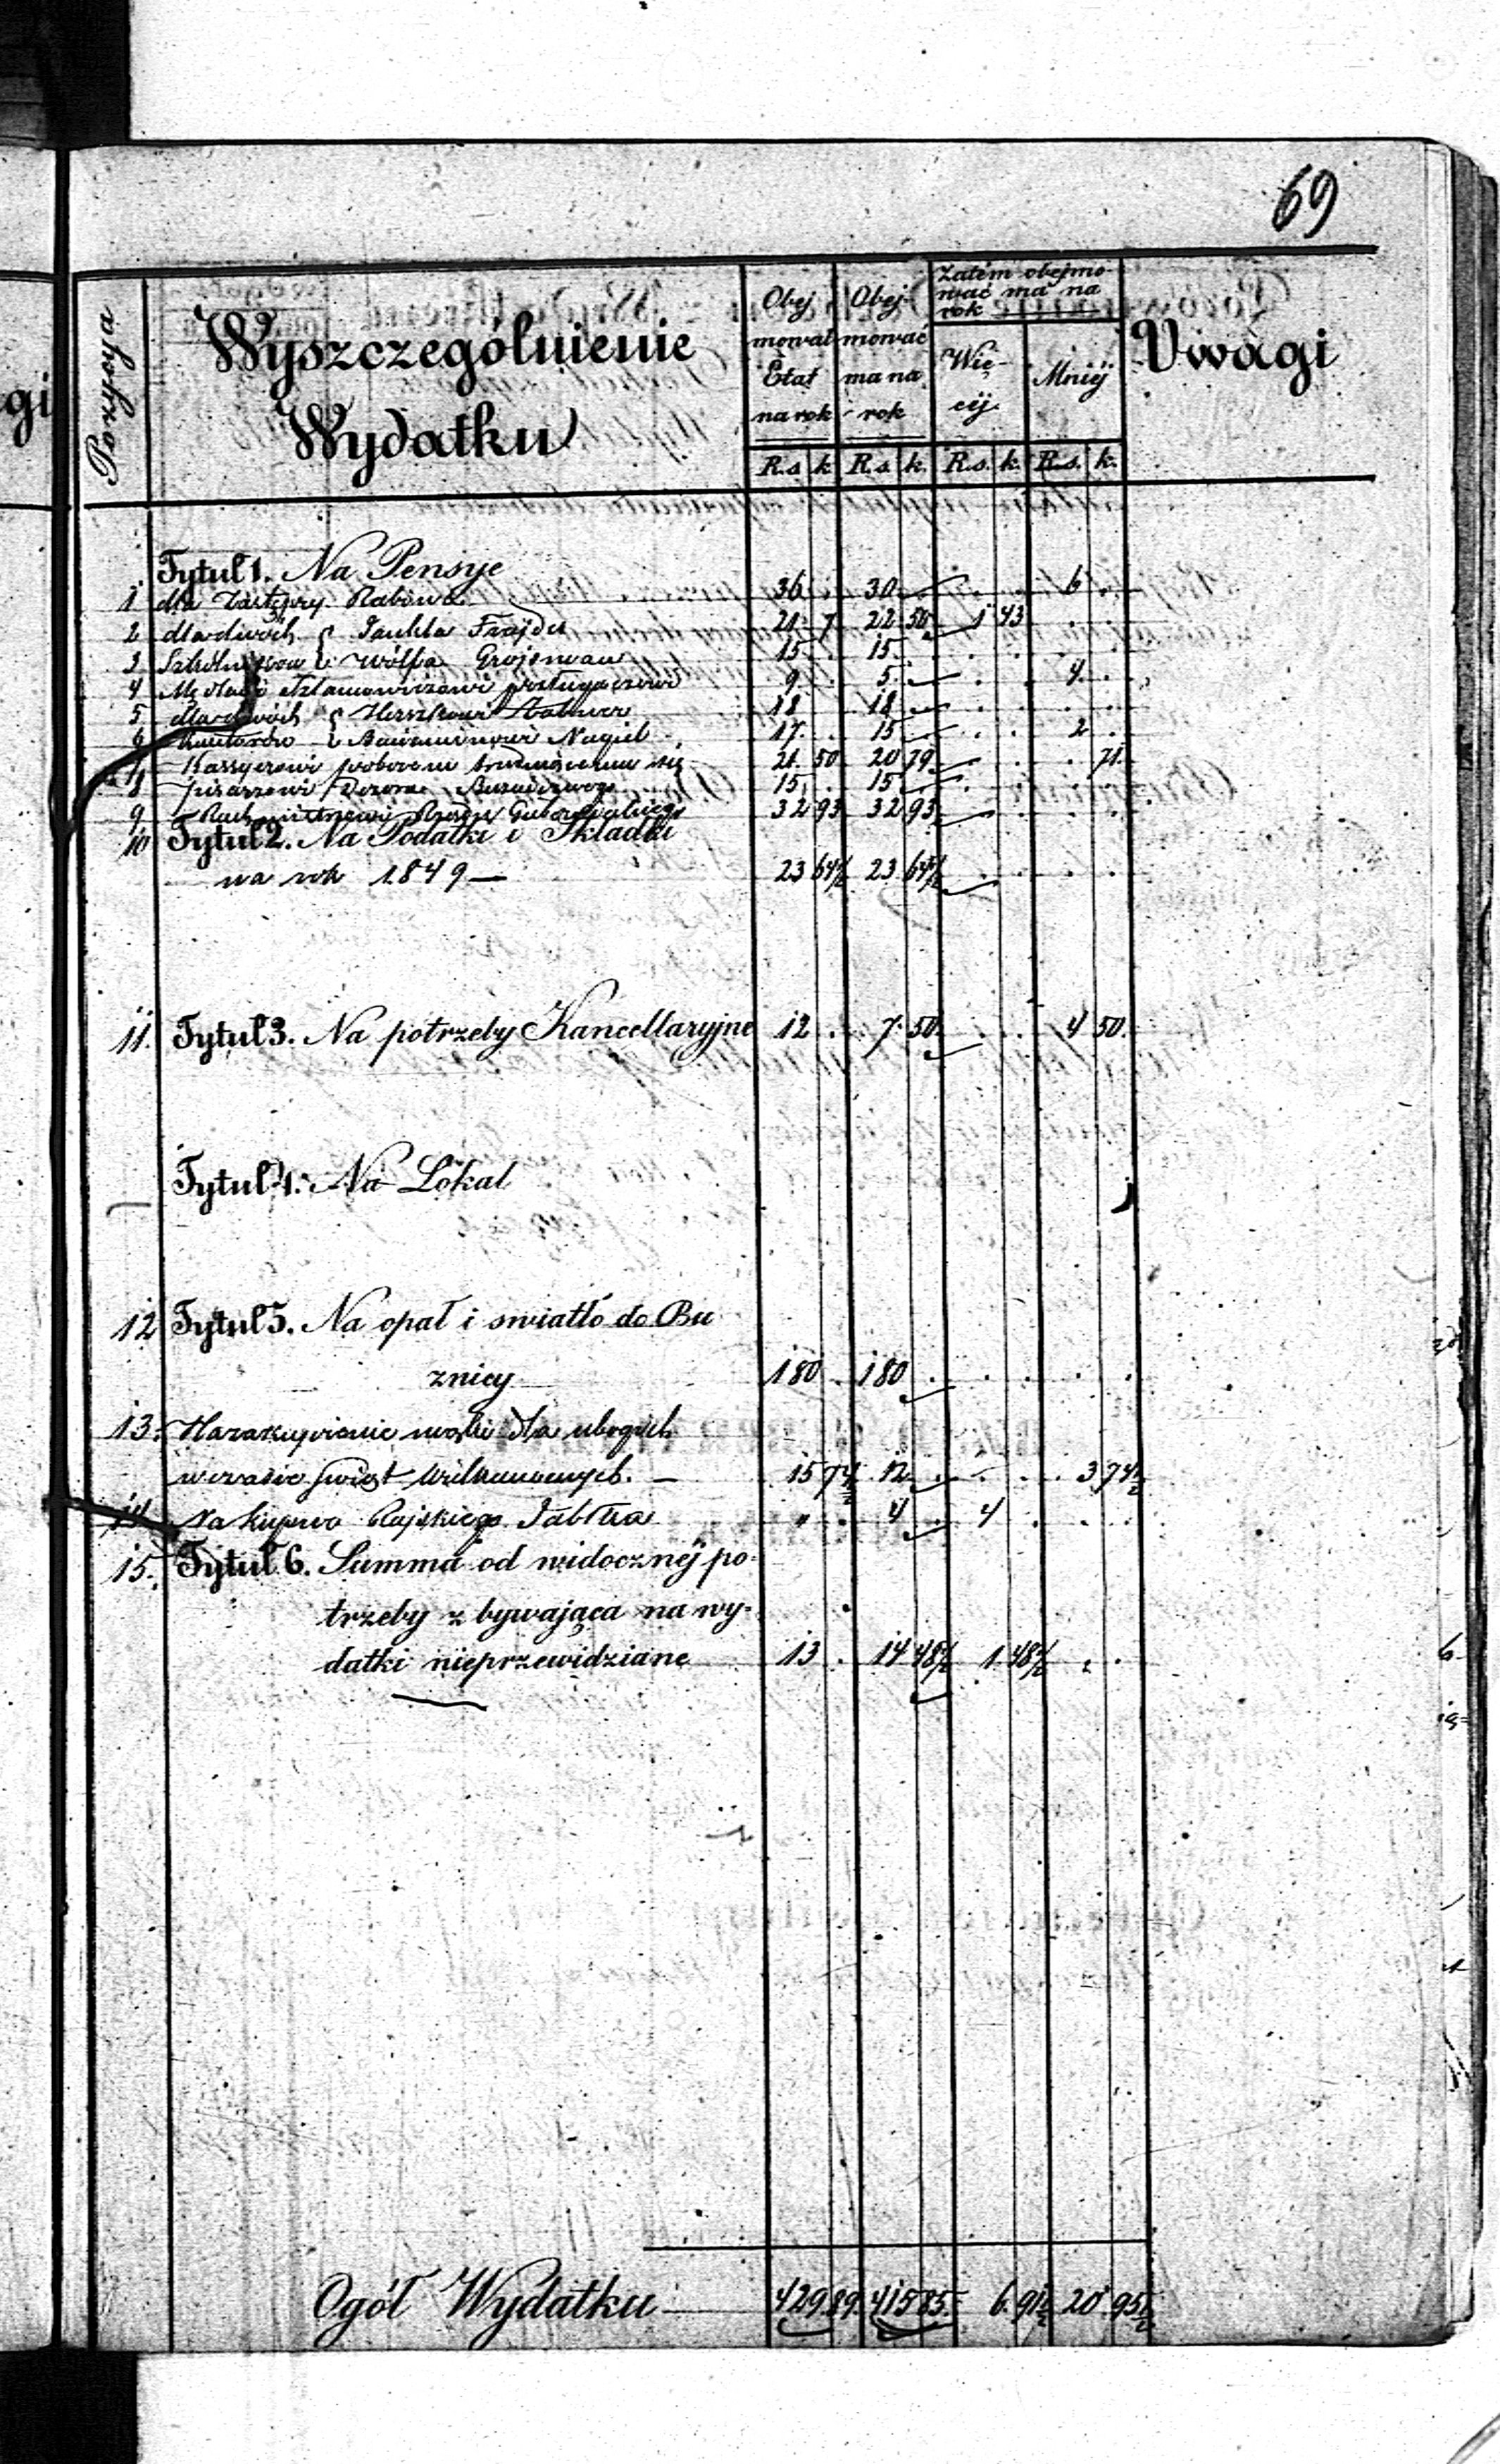 69
Pozycja
Wyszczególnienie
Wydatku
Obej
mował
Etat
na rok
Obej-
mować
ma na
rok
Zatém obejmo-
wać ma na
rok
Wię-
céj
Mniéj
Uwagi
R.s. k. R.s. k. R.s. k. R.s. k.
Tytuł 1. Na Pensye
1 dla Zastępcy Rabina 36 . 30 . . . 6 .
2 dla dwóch Jankla Frajde 21 7 22 50 1 43
3 Wólfa Grojsman 15 . 15 . . . . .
4 9 . 5 . . . 4 .
5 dla dwóch Herszkowi 18 . 18 . . . . .
6 Kantorów Nagiel 17 . 15 . . . 2 .
7 Kassyerowi poborem trudniącemu się 21 50 20 79 . . . 71
8 pisarzowi Dozoru 15 . 15 . . . . .
9 32 93 32 93 . . . .
10 Tytuł 2. Na Podatki i Składki
na rok 1849 — 23 64½ 23 64½ . . . .
11. Tytuł 3. Na potrzeby Kancellaryjne 12 . 7 50 . . 4 50.
Tytuł 4. Na Lokal
12 Tytuł 5. Na opał i swiatło do Bu
znicy 180 . 180 . . . . .
13. Na zakupienie mąki dla ubogich
w czasie swiąt Wielkanocnych. — 15 74½ 12 . . . 3 74½
14 Na kupno Rajskiego Jabłka " . 4 . 4 . . .
15. Tytuł 6. Summa od widocznéj po-
trzeby zbywająca na wy-
datki nieprzewidziane 13 . 14 48½ 1 48½ . .
Ogół Wydatku 429 89. 415 85. 6. 91½ 20 95½